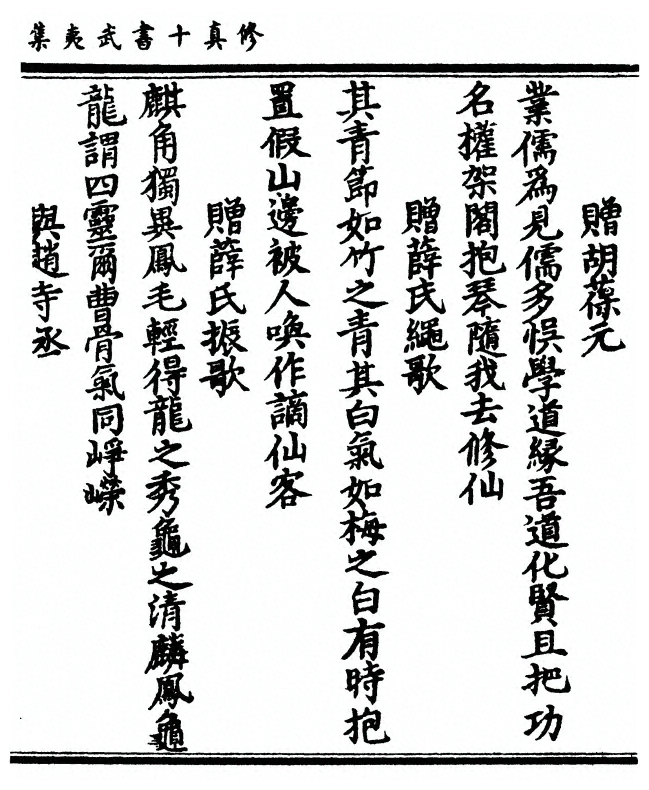 修真十書武夷集
贈胡葆元
業儒爲見儒多悮學道緣吾道化賢且把功
名權架閣抱琴隨我去修仙
贈薛氏繩歌
其青節如竹之青其白氣如梅之白有時抱
置假山邊被人喚作謫仙客
贈薛氏振歌
麒角獨異鳳毛輕得龍之秀龜之清麟鳳龜
龍謂四靈爾曹骨氣同崢嶸
與趙寺丞